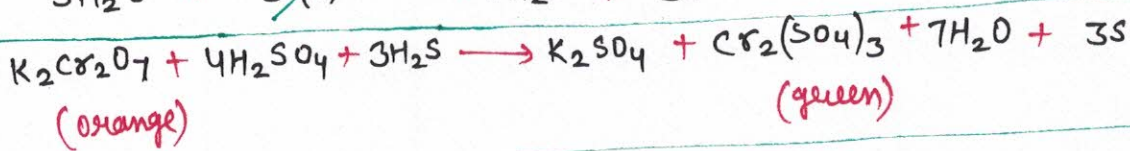 K₂Cr₂O₇ + 4H₂SO₄ + 3H₂S ⟶ K₂SO₄ + Cr₂(SO₄)₃ + 7H₂O + 3S
(orange) (green)